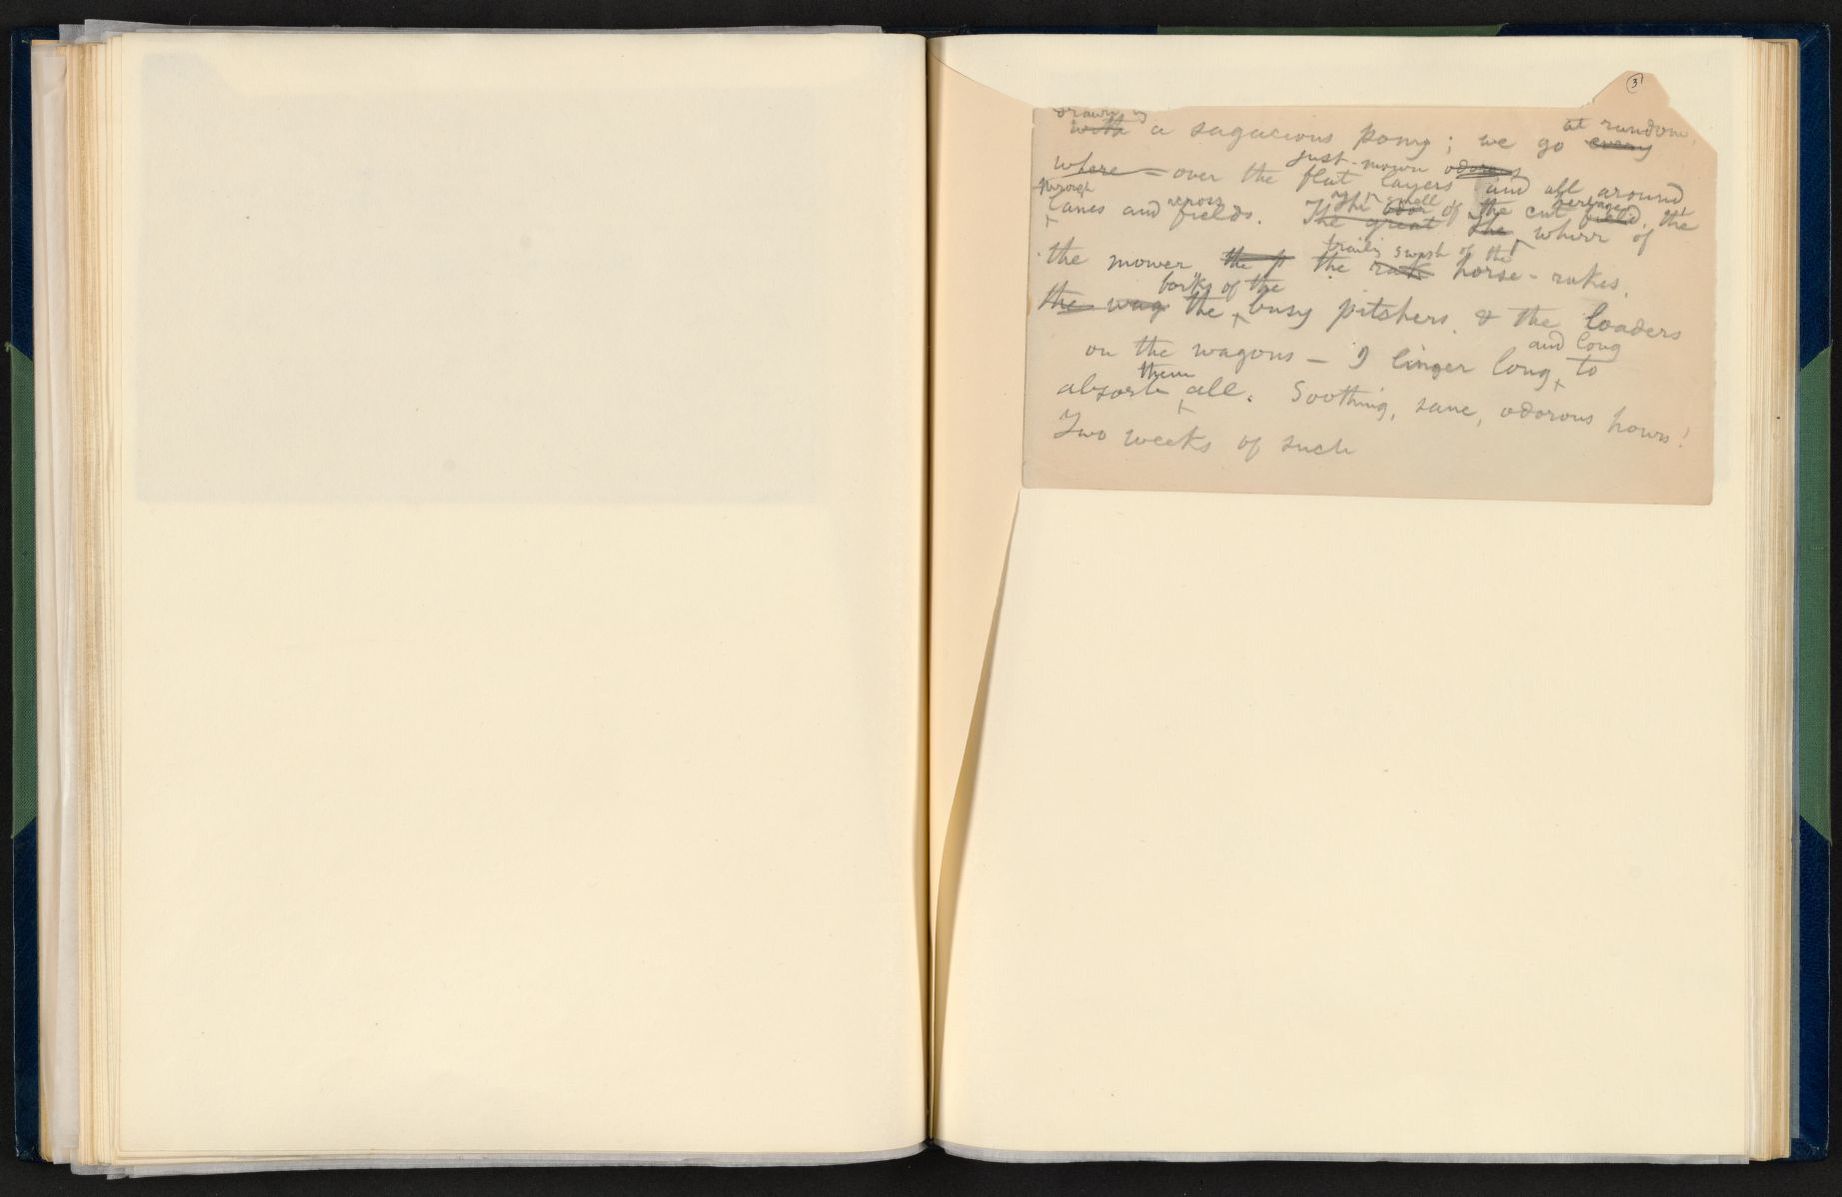 3
drawn by
with a sagacious pony; we go every at random,
where – over the flat just-mown layers odorous and all around
through lanes and across fields. The great the odor smell of the cut field herbage, the
the mower the p the rake horse-rakes. the whirr of
trailing swish of the
the way the forks of the busy pitchers. & the loaders
on the wagons – I linger long and long to
absorb them all. Soothing, sane, odorous hours!
Two weeks of such